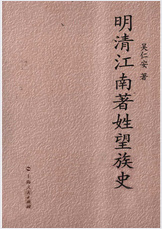 明清江南著姓望族史
吴仁安 著
上海人民出版社